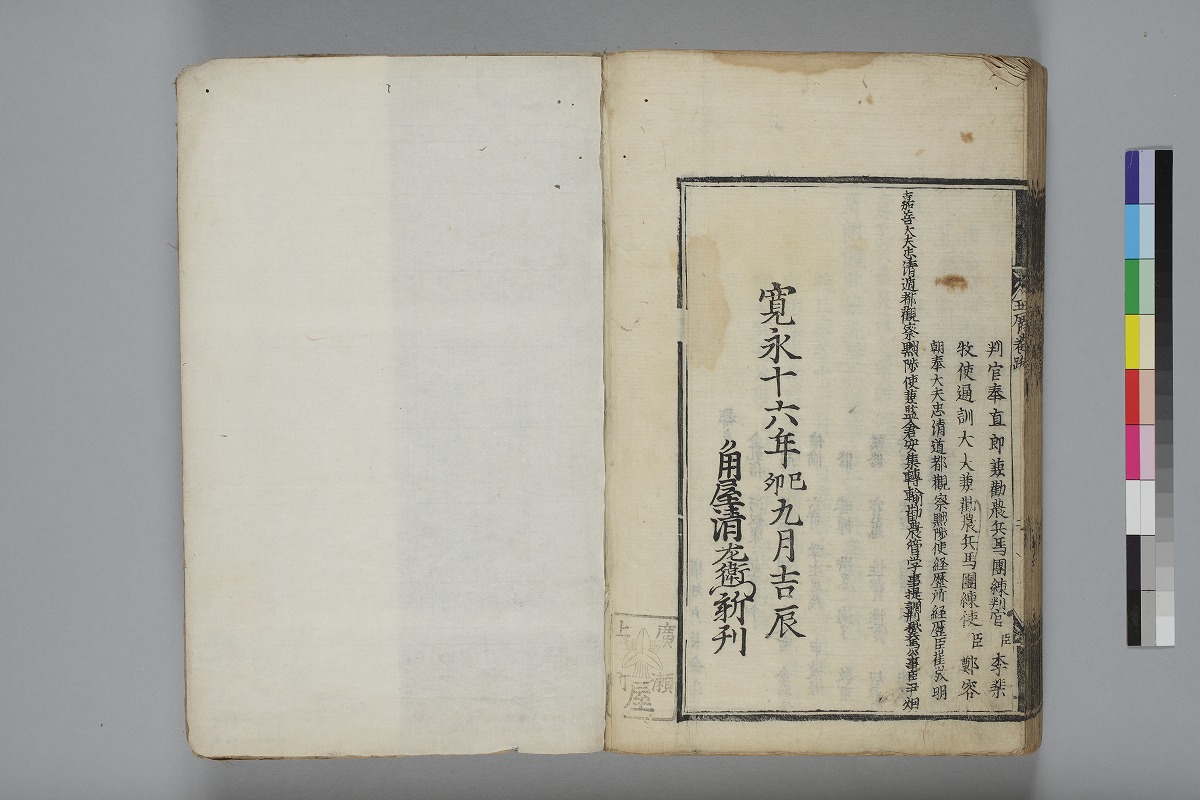 判官奉直郎兼勸農兵馬團練判官 臣 李榮
牧使通訓大夫兼勸農兵馬團練使 臣 鄭容
朝奉大夫忠清道都觀察黜陟使経歴所経歴臣崔
嘉善大夫忠清道都觀察黜陟使兼監倉安集轉輸勸農管学事提調刑獄兵馬公事臣尹炯
寛永十六年己卯九月吉辰
角屋清左衛門新刊
廣瀬
屋
上